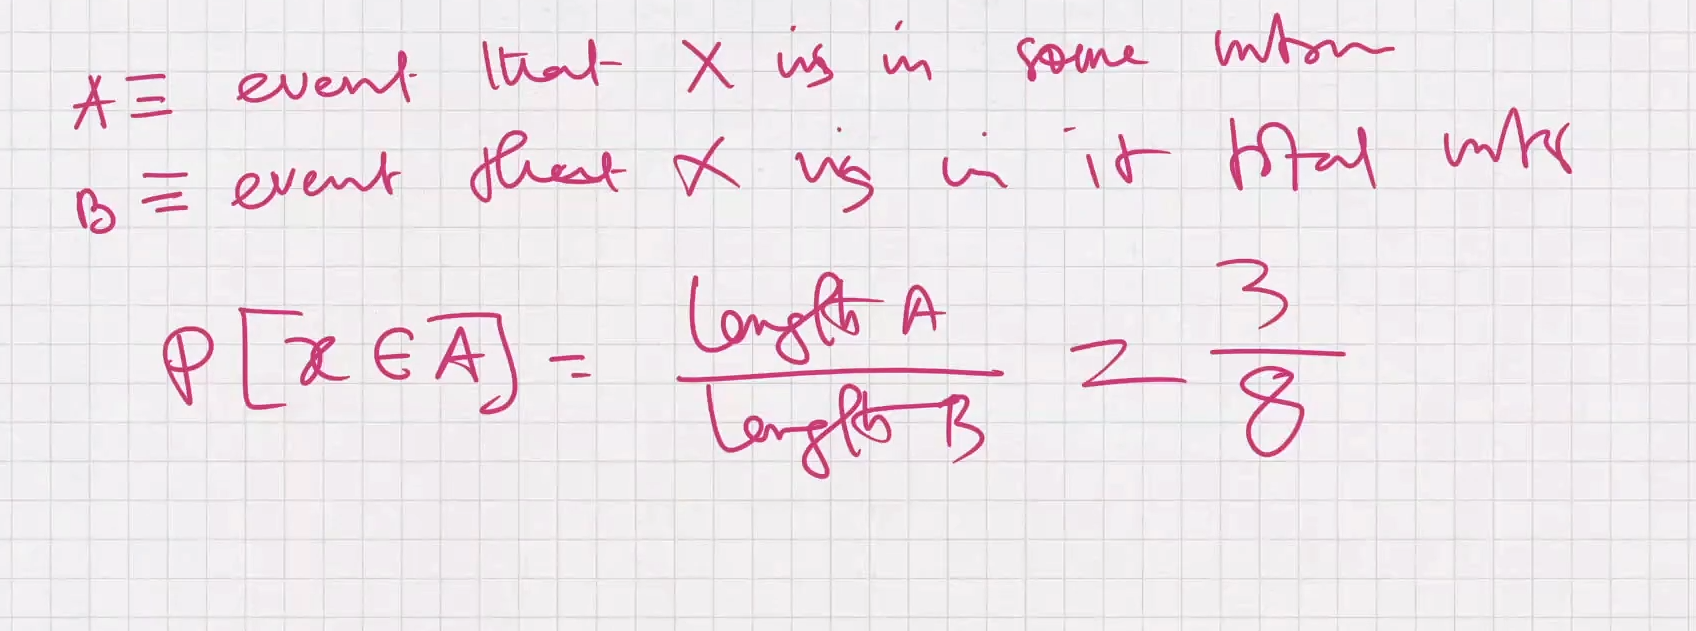 A ≡ event that X is in some
B ≡ event that X is in it total
P[x ∈ A] = length A / length B = 3/8